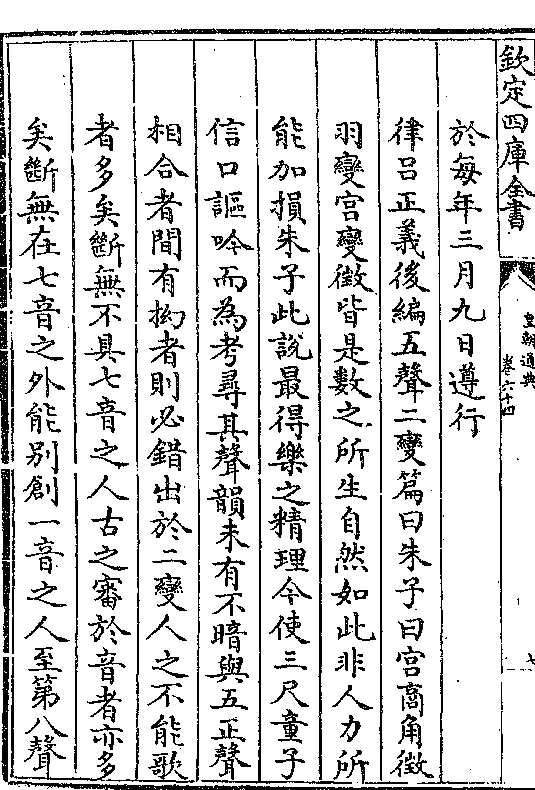 欽定四庫全書
皇朝通典
卷六十四
七
於每年三月九日遵行
律呂正義後編五聲二變篇曰朱子曰宮商角徵
羽變宮變徵皆是數之所生自然如此非人力所
能加損朱子此說最得樂之精理今使三尺童子
信口謳吟而為考尋其聲韻未有不暗與五正聲
相合者間有拗者則必錯出於二變人之不能歌
者多矣斷無不具七音之人古之審於音者亦多
矣斷無在七音之外能別創一音之人至第八聲